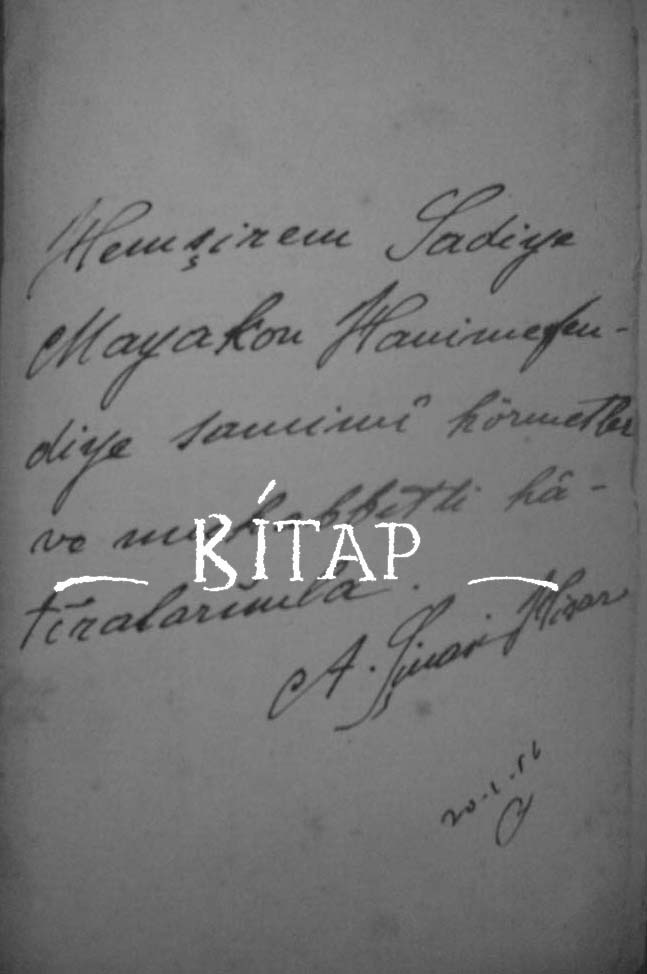 Hemşirem Sadiye
Mayakon Hanımefen-
diye samimî hörmetler
ve muhabbetli hâ-
BİTAP
tıralarımla.
A. Şinasi Hisar